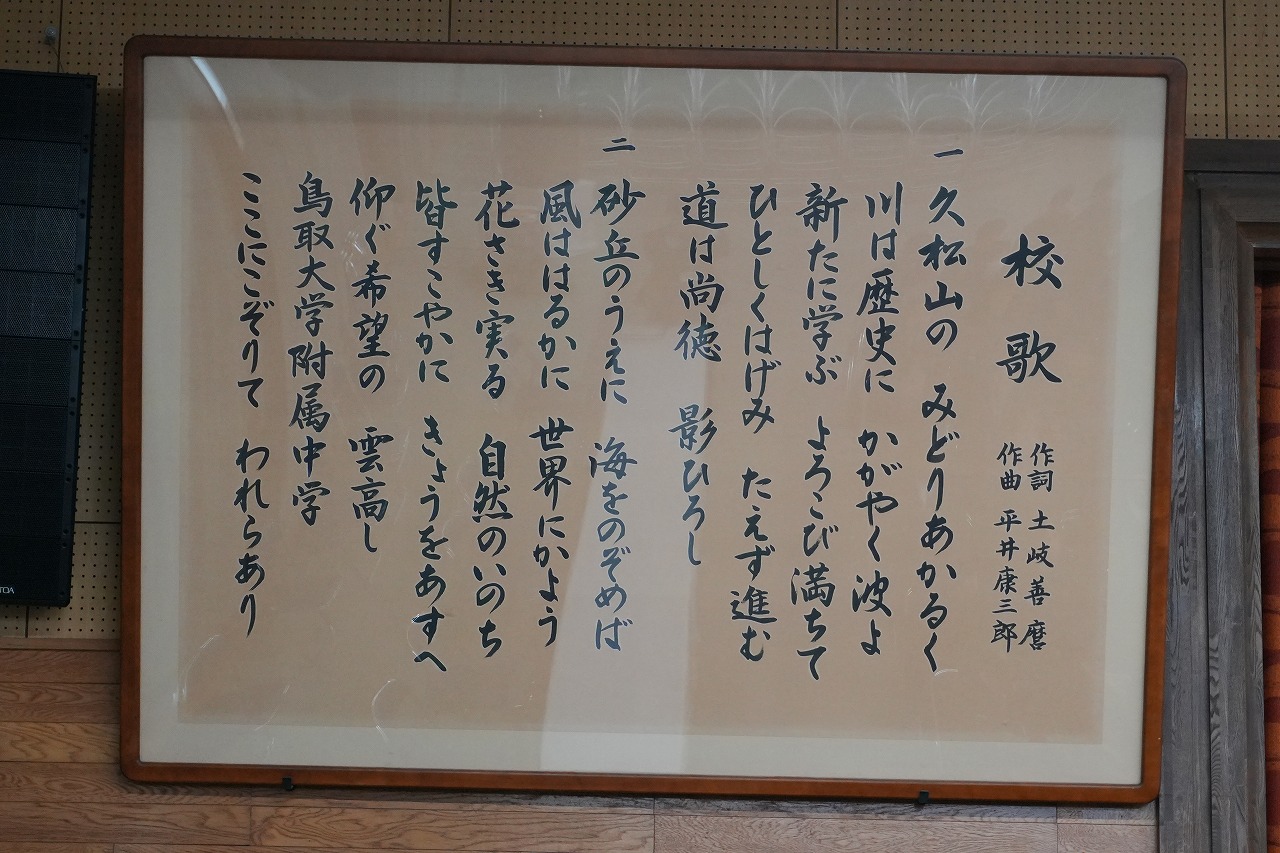 校歌
作詞 土岐善麿
作曲 平井康三郎
一 久松山の みどりあかるく
川は歴史に かがやく波よ
新たに学ぶ よろこび満ちて
ひとしくはげみ たえず進む
道は尚徳 影ひろし
二 砂丘のうえに 海をのぞめば
風ははるかに 世界にかよう
花さき実る 自然のいのち
皆すこやかに きょうをあすへ
仰ぐ希望の 雲高し
鳥取大学附属中学
ここにこぞりて われらあり
TOA